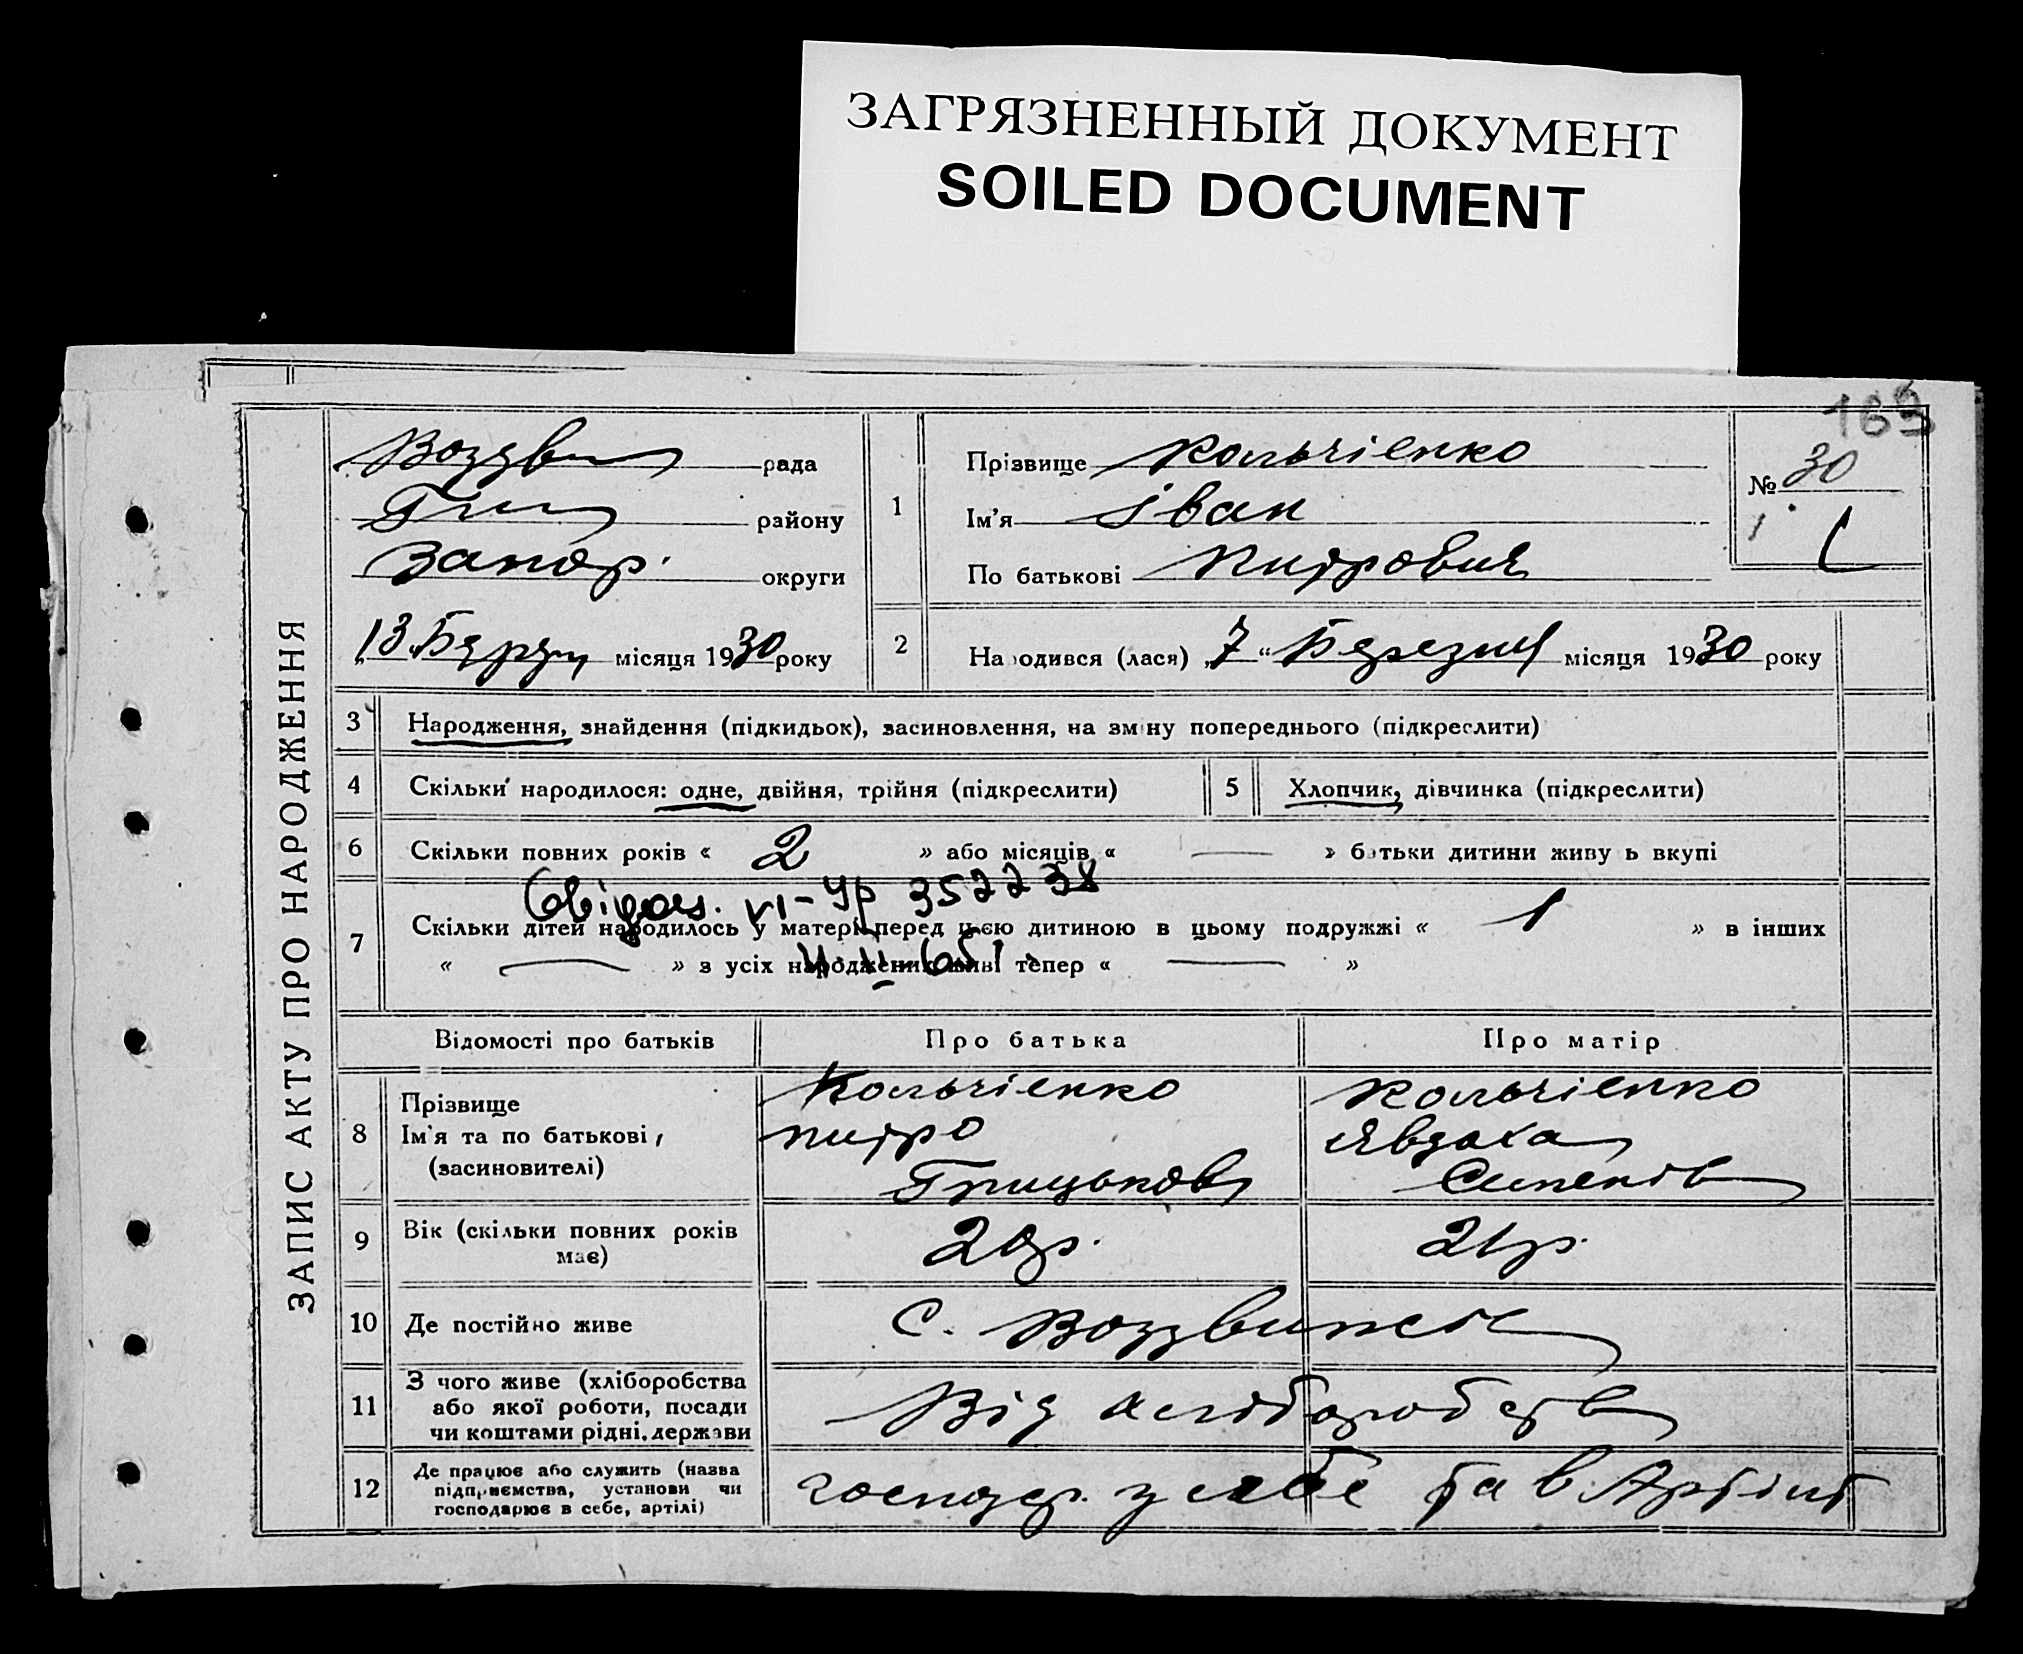 ЗАГРЯЗНЕННЫЙ ДОКУМЕНТ
SOILED DOCUMENT
169
ЗАПИС АКТУ ПРО НАРОДЖЕННЯ
рада
району
Запор. округи
13 місяця 1930 року
1
Прізвище Кольчіенко
Ім'я Іван
По батькові Питрович
№ 30
2
Народився (лася) „7“ Березня місяця 1930 року
3 Народження, знайдення (підкидьок), засиновлення, на зміну попереднього (підкреслити)
4 Скільки народилося: одне, двійня, трійня (підкреслити)
5 Хлопчик, дівчинка (підкреслити)
6 Скільки повних років « 2 » або місяців « — » батьки дитини живуть вкупі
VI-УР 352238
7 Скільки дітей народилось у матері перед цією дитиною в цьому подружжі « 1 » в інших
« — » з усіх народжених живі тепер « — »
Відомості про батьків
Про батька
Про матір
8 Прізвище
Ім'я та по батькові,
(засиновителі)
Кольчіенко
Питро
Грицьков
Кольчіенко
Явдоха
9 Вік (скільки повних років має)
20р.
21р.
10 Де постійно живе
с. Воздвижен
11 З чого живе (хліборобства
або якої роботи, посади
чи коштами рідні, держави
Від хліборобств
12 Де працює або служить (назва
підприємства, установи чи
господарює в себе, артілі)
господ. у себе та в Артілі